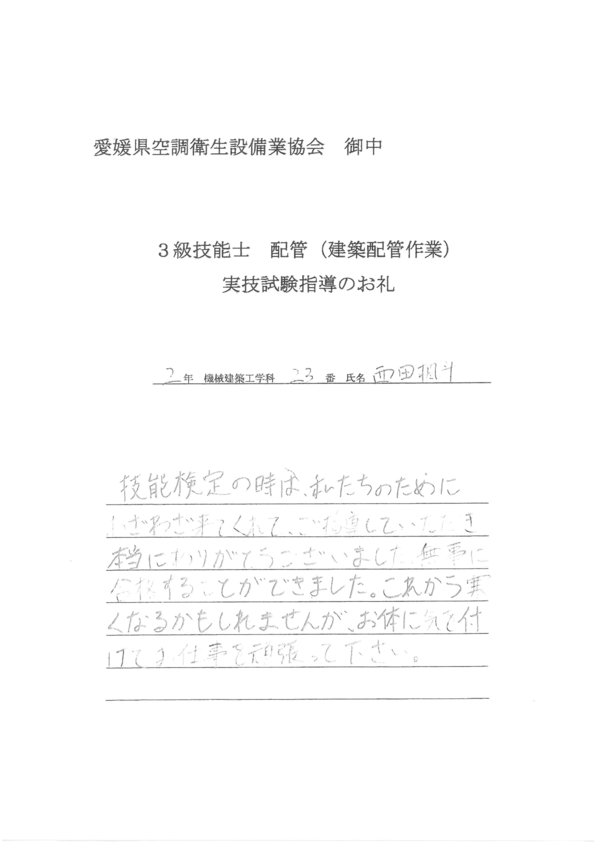 愛媛県空調衛生設備業協会　御中
３級技能士　配管（建築配管作業）
実技試験指導のお礼
2年 機械建築工学科 23番 氏名 西田
技能検定の時は、私たちのために
わざわざ来てくれて、ご指導していただき
本当にありがとうございました。無事に
合格することができました。これから寒
くなるかもしれませんが、お体に気を付
けてお仕事を頑張って下さい。